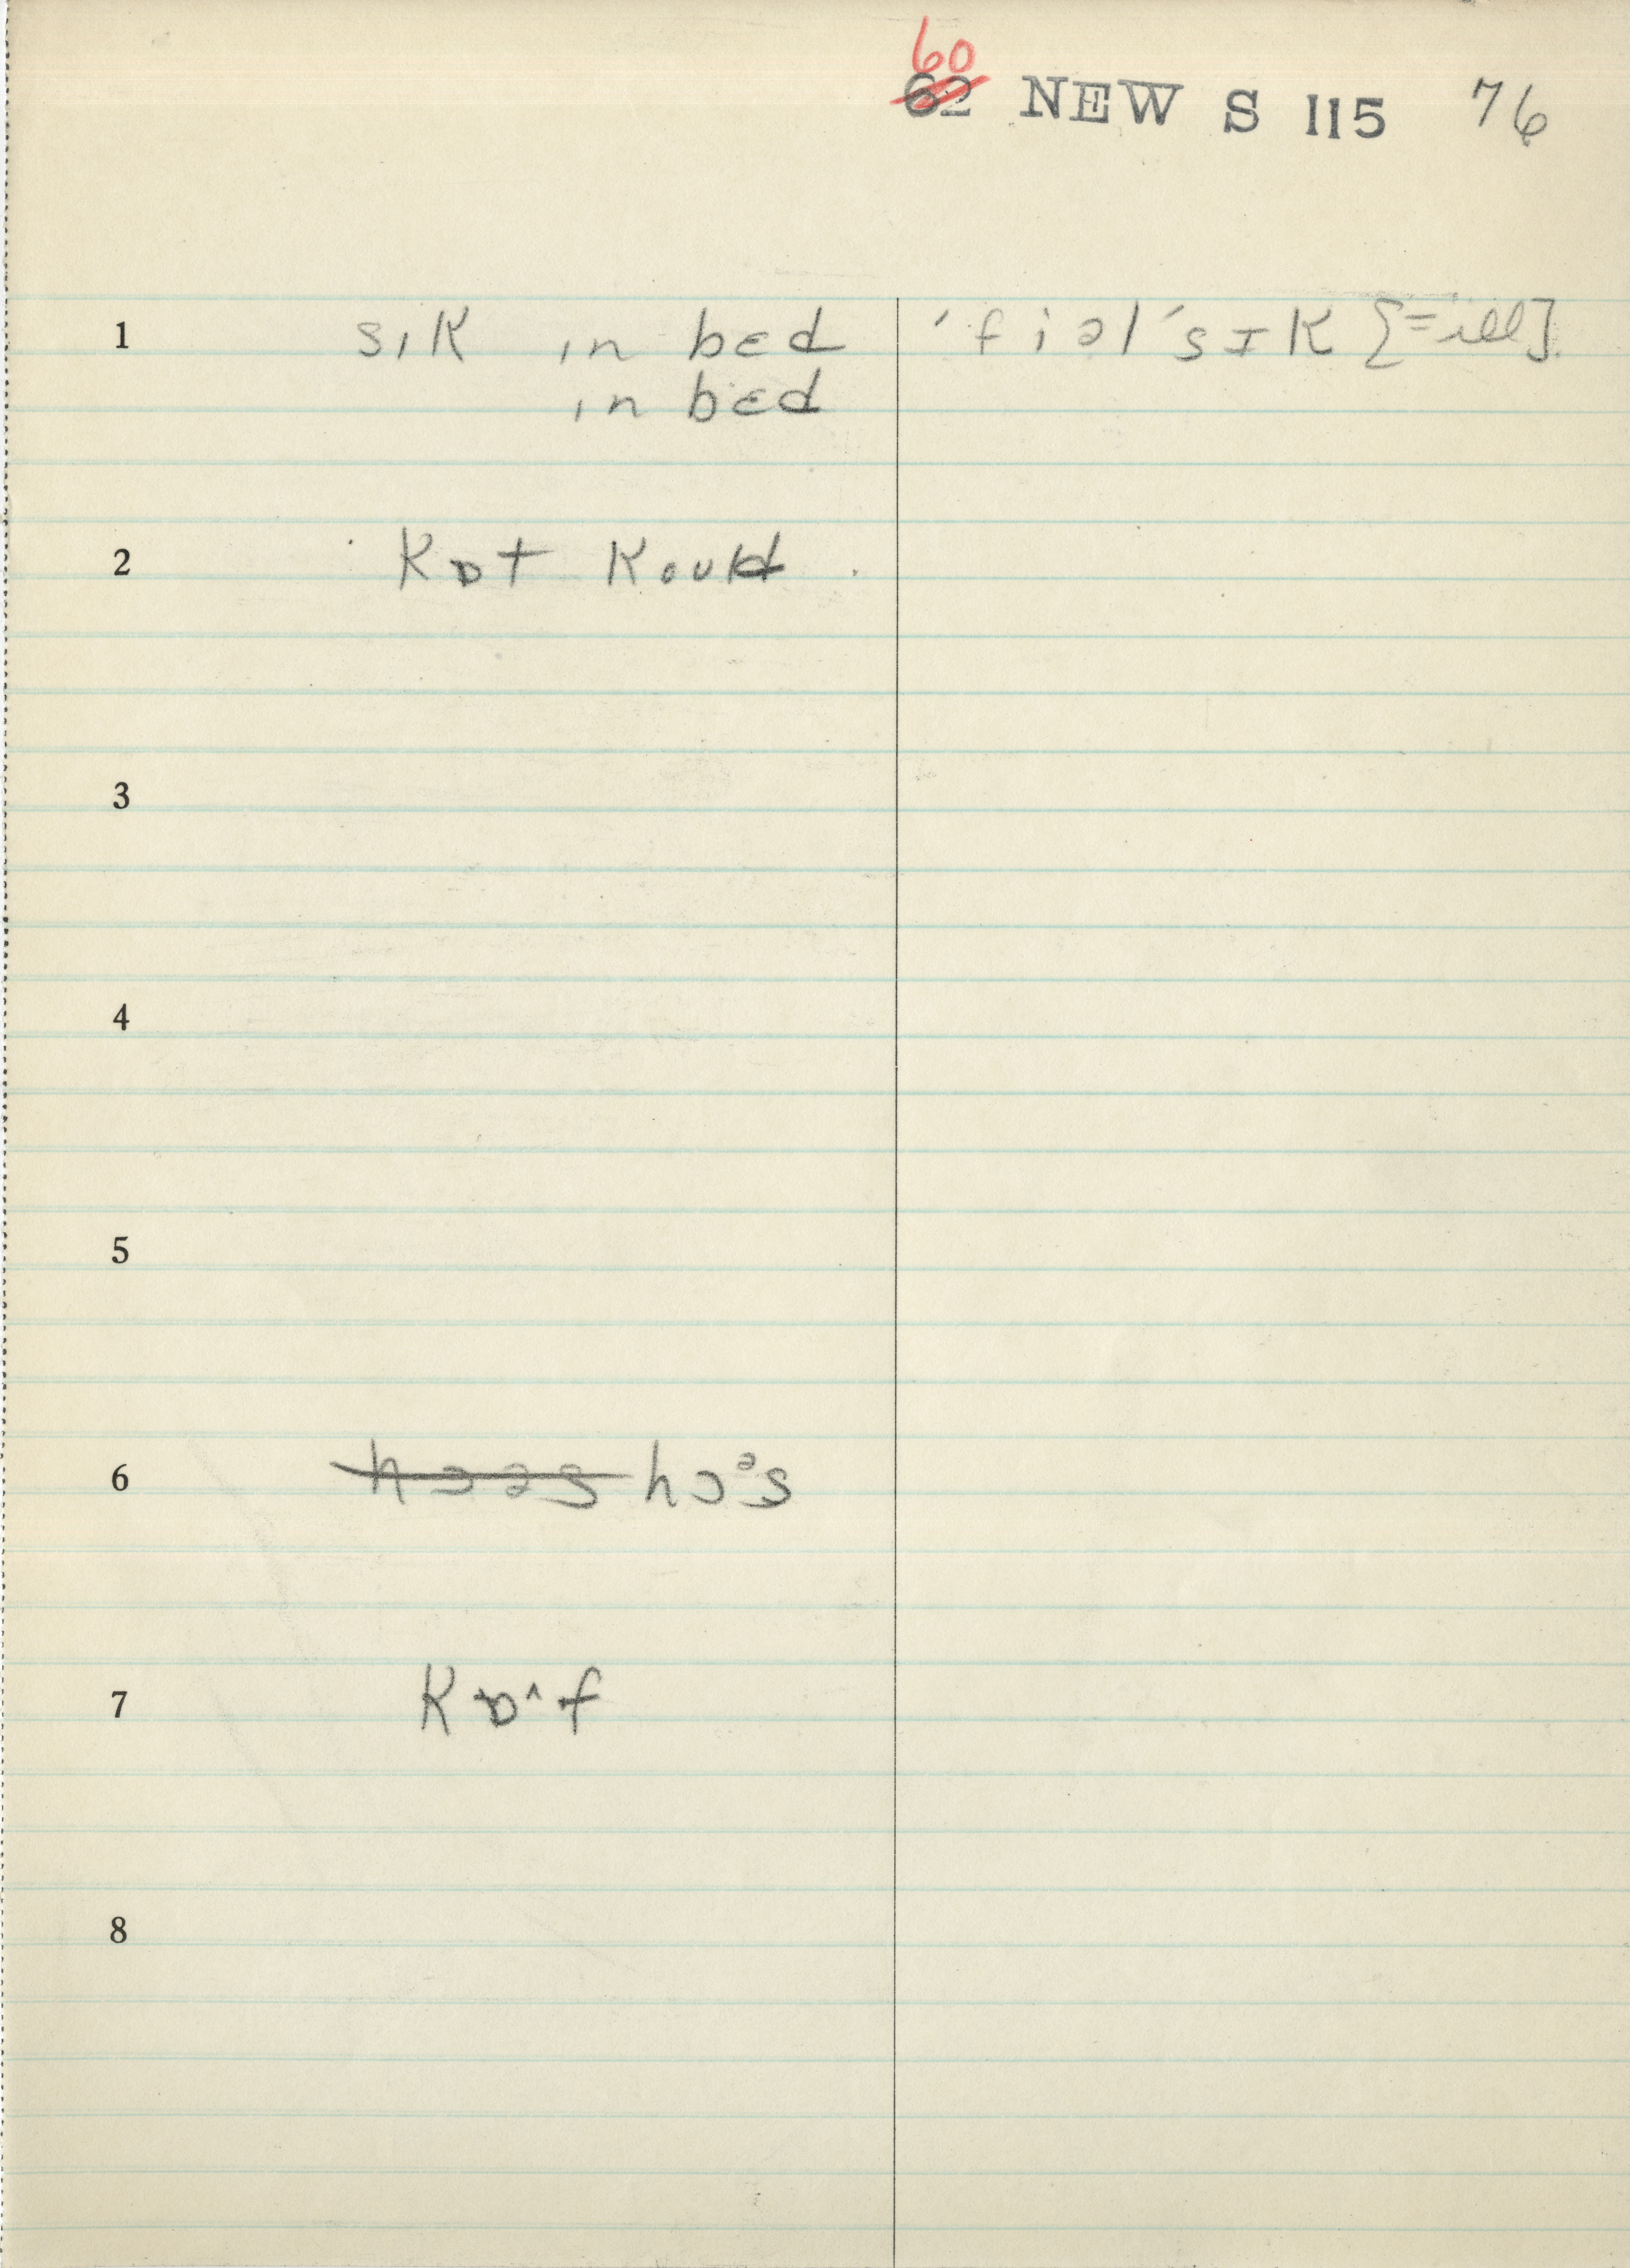 60
62 NEW S 115 76
1 sɪk ɪn bɛd 'fiəl 'sɪk [=ill].
ɪn bɛd
2 kɒt kould
3
4
5
6 hɔəs hɔᵊs
7 kɒ^f
8